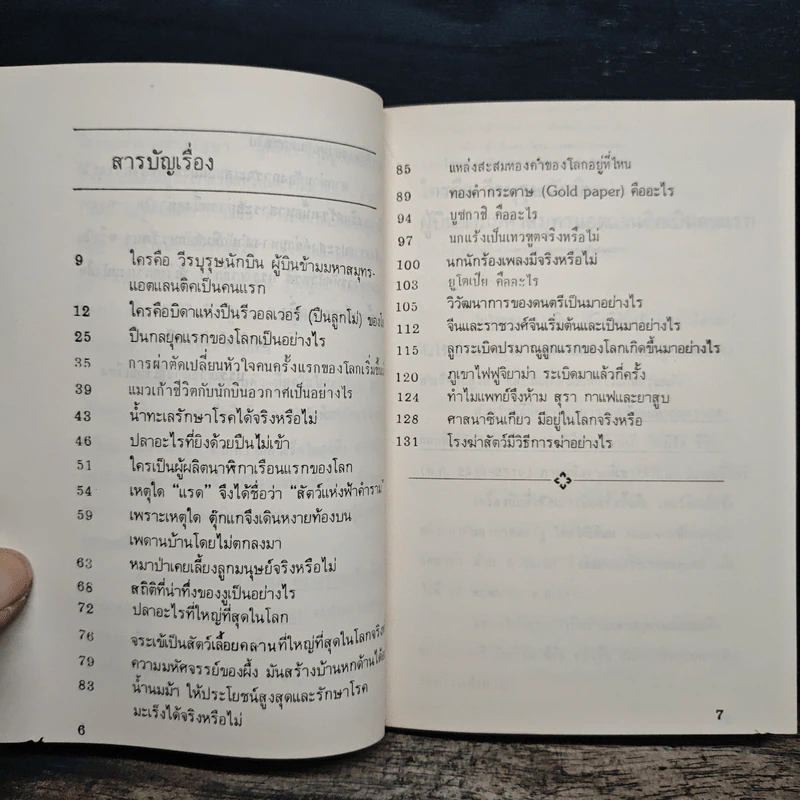 สารบัญเรื่อง
9 ใครคือ วีรบุรุษนักบิน ผู้บินข้ามมหาสมุทร-
แอตแลนติคเป็นคนแรก
12 ใครคือบิดาแห่งปืนรีวอลเวอร์ (ปืนลูกโม่)
25 ปืนกลยุคแรกของโลกเป็นอย่างไร
35 การผ่าตัดเปลี่ยนหัวใจคนครั้งแรกของโลกเริ่มขึ้น
39 แมวเก้าชีวิตกับนักบินอวกาศเป็นอย่างไร
43 น้ำทะเลรักษาโรคได้จริงหรือไม่
46 ปลาอะไรที่ยิงด้วยปืนไม่เข้า
51 ใครเป็นผู้ผลิตนาฬิกาเรือนแรกของโลก
54 เหตุใด "แรด" จึงได้ชื่อว่า "สัตว์แห่งฟ้าคำราม"
59 เพราะเหตุใด ตุ๊กแกจึงเดินหงายท้องบน
เพดานบ้านโดยไม่ตกลงมา
63 หมาป่าเคยเลี้ยงลูกมนุษย์จริงหรือไม่
68 สถิติที่น่าทึ่งของงูเป็นอย่างไร
72 ปลาอะไรที่ใหญ่ที่สุดในโลก
76 จระเข้เป็นสัตว์เลื้อยคลานที่ใหญ่ที่สุดในโลกจริง
79 ความมหัศจรรย์ของผึ้ง มันสร้างบ้านหกด้านได้
83 น้ำนมม้า ให้ประโยชน์สูงสุดและรักษาโรค
มะเร็งได้จริงหรือไม่
6
85 แหล่งสะสมทองคำของโลกอยู่ที่ไหน
89 ทองคำกระดาษ (Gold paper) คืออะไร
94 บูชกาชิ คืออะไร
97 นกแร้งเป็นเทวฑูตจริงหรือไม่
100 นกนักร้องเพลงมีจริงหรือไม่
103 ยูโตเปีย คืออะไร
105 วิวัฒนาการของดนตรีเป็นมาอย่างไร
112 จีนและราชวงศ์จีนเริ่มต้นและเป็นมาอย่างไร
115 ลูกระเบิดปรมาณูลูกแรกของโลกเกิดขึ้นมาอย่างไร
120 ภูเขาไฟฟูจิยาม่า ระเบิดมาแล้วกี่ครั้ง
124 ทำไมแพทย์จึงห้าม สุรา กาแฟและยาสูบ
128 ศาสนาซินเกียว มีอยู่ในโลกจริงหรือ
131 โรงฆ่าสัตว์มีวิธีการฆ่าอย่างไร
7